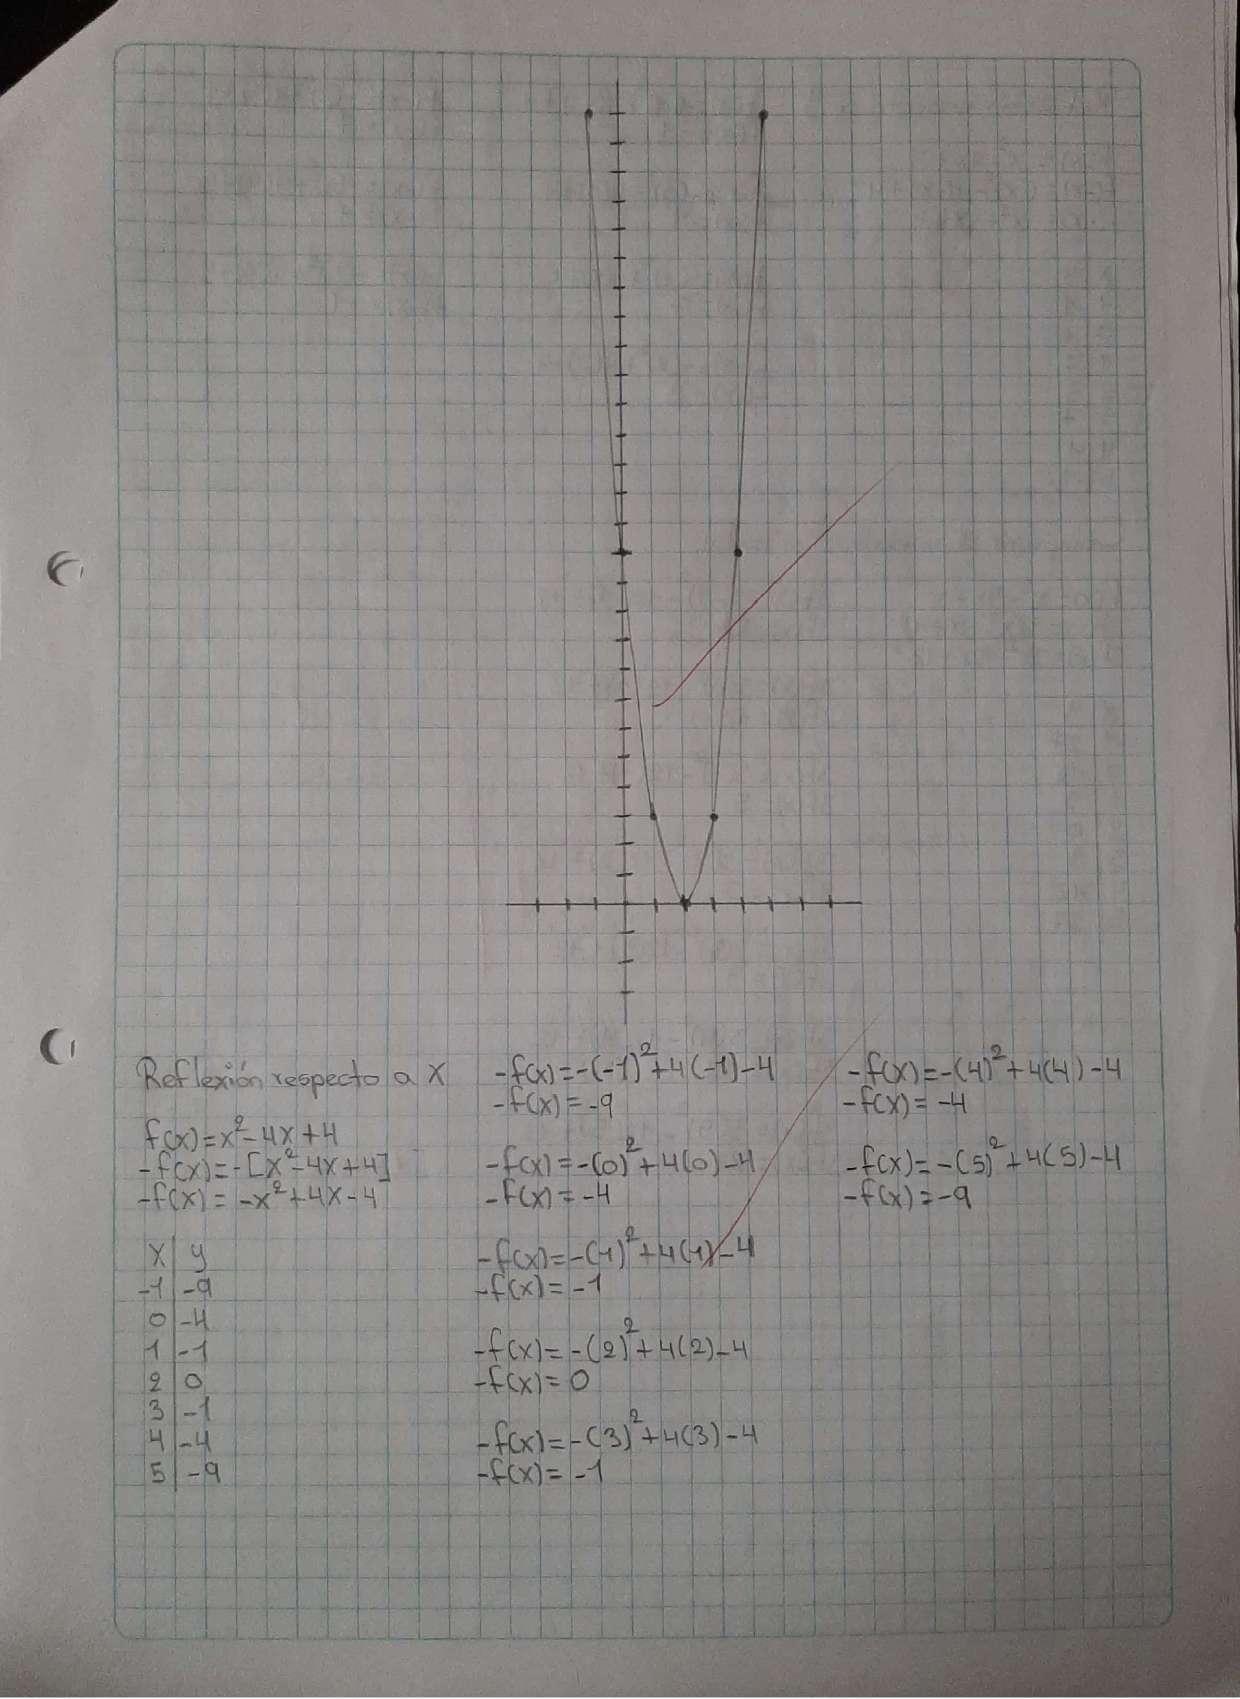 Reflexión respecto a X
f(x)=x²-4x+4
-f(x)=-[x²-4x+4]
-f(x)=-x²+4x-4
x y
-1 -9
0 -4
1 -1
2 0
3 -1
4 -4
5 -9
-f(x)=-(-1)²+4(-1)-4
-f(x)=-9
-f(x)=-(0)²+4(0)-4
-f(x)=-4
-f(x)=-(1)²+4(1)-4
-f(x)=-1
-f(x)=-(2)²+4(2)-4
-f(x)=0
-f(x)=-(3)²+4(3)-4
-f(x)=-1
-f(x)=-(4)²+4(4)-4
-f(x)=-4
-f(x)=-(5)²+4(5)-4
-f(x)=-9